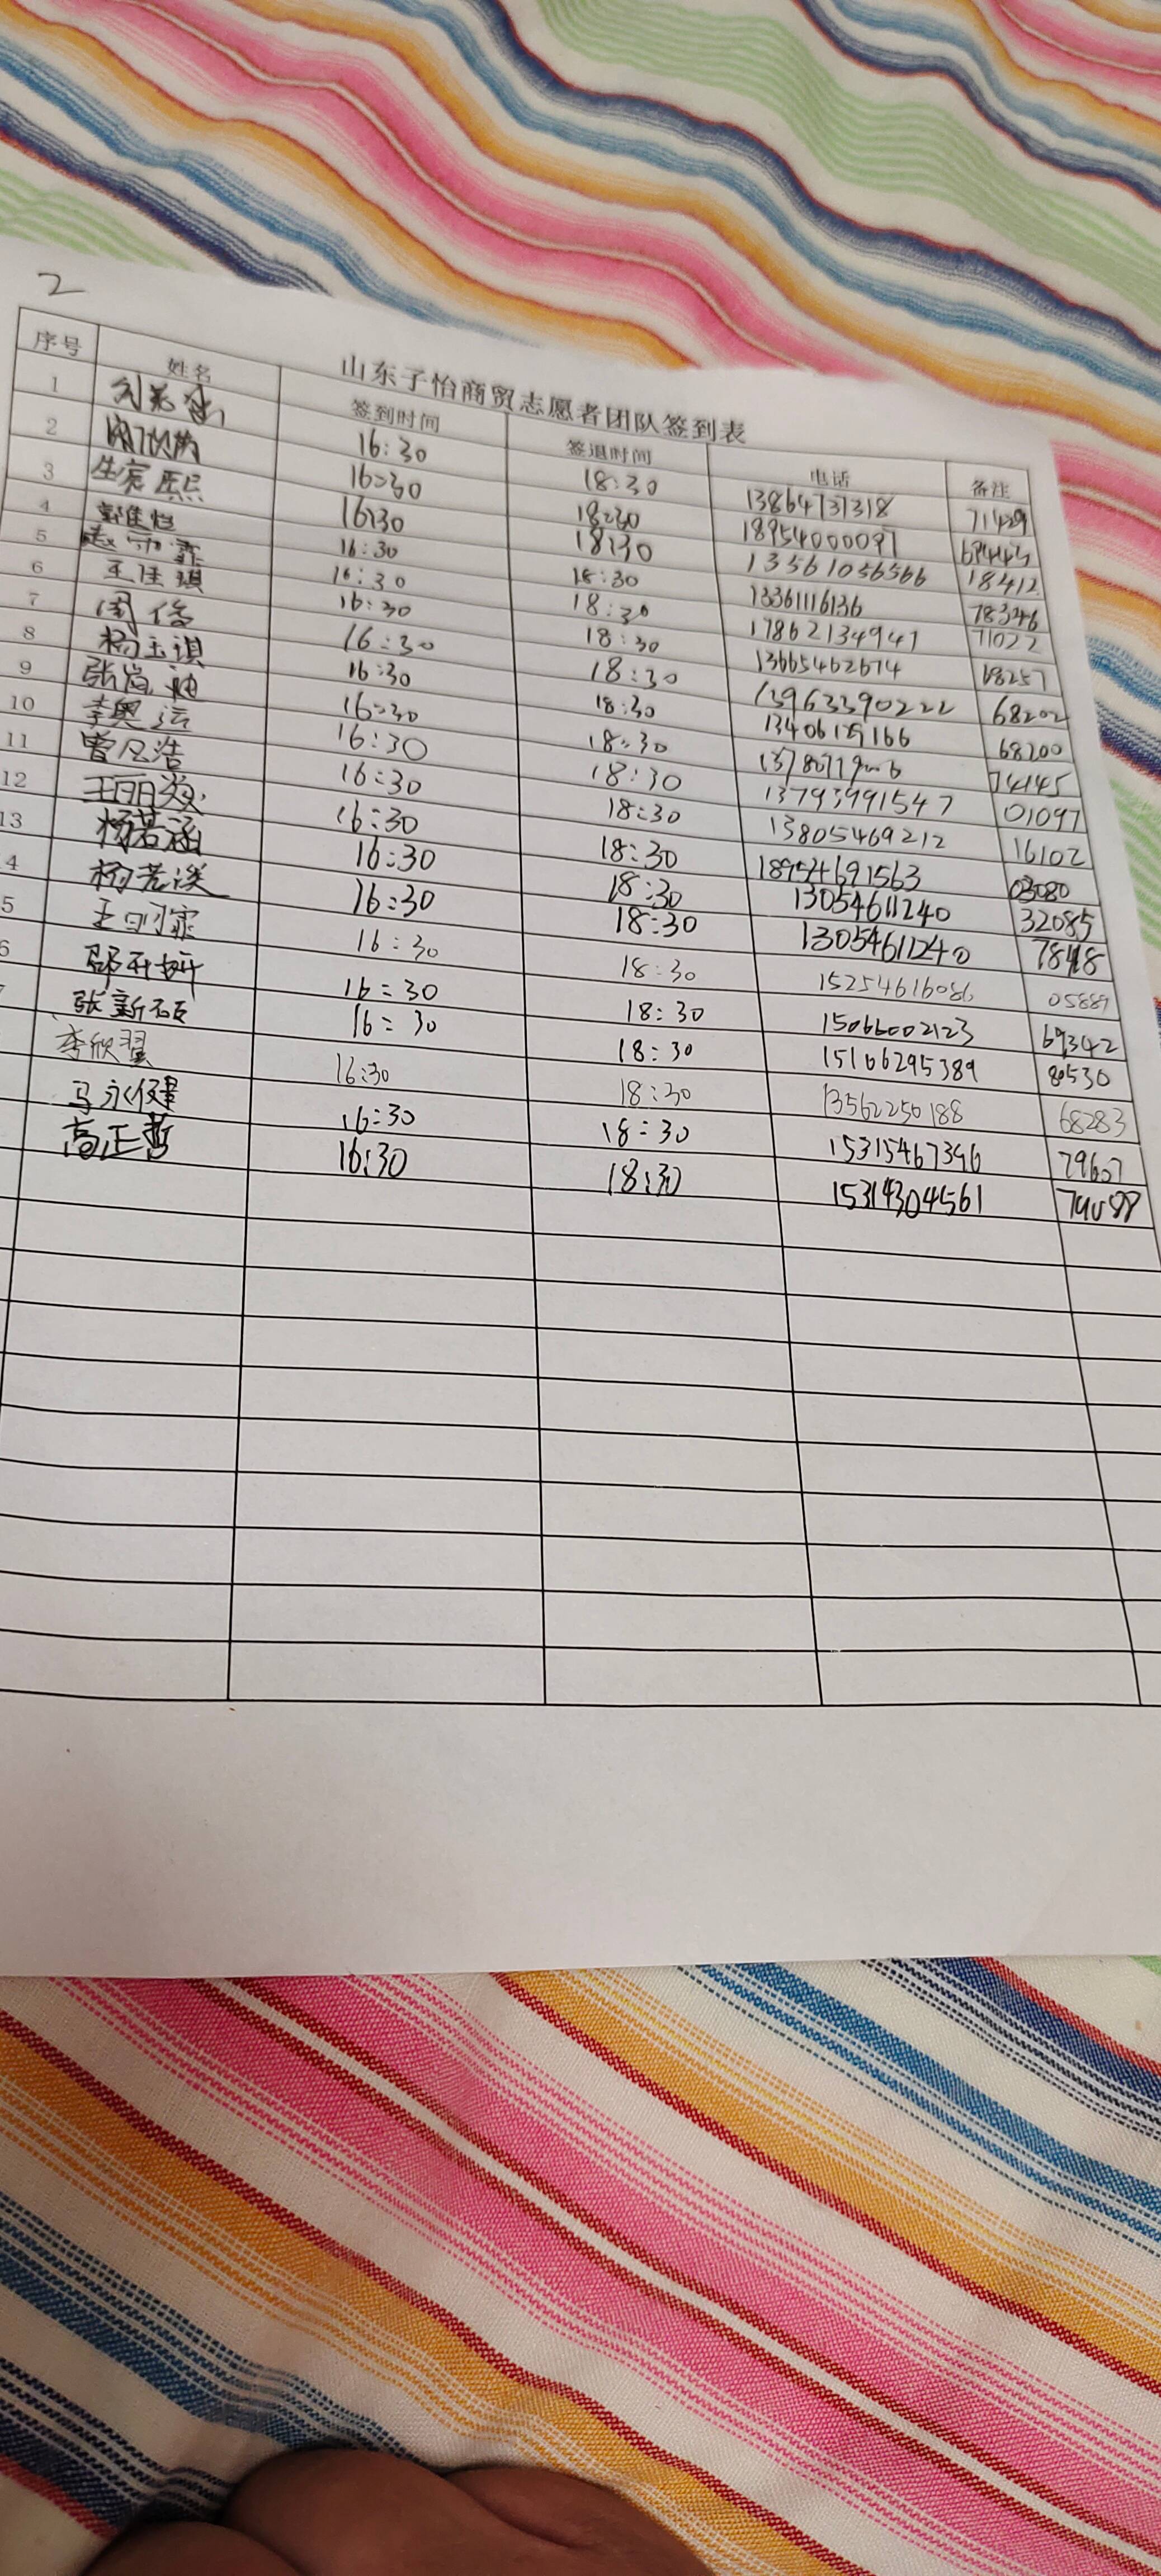 2
山东子怡商贸志愿者团队签到表
序号 姓名 签到时间 签退时间 电话 备注
1 16:30 18:30 13864731318 71429
2 16:30 18:30 18954000091
3 生宸熙 16:30 18:30 13561056566 18412
4 16:30 18:30 13361116136 78346
5 16:30 18:30 17862134941 71022
6 王佳琪 16:30 18:30 13665462674 68257
7 周俊 16:30 18:30 13963390222 68202
8 杨玉琪 16:30 18:30 68200
9 张岚迪 16:30 18:30 74145
10 李奥运 16:30 18:30 13793991547 01097
11 曾凡浩 16:30 18:30 13805469212 16102
12 16:30 18:30 18954691563 03080
13 杨若涵 16:30 18:30 13054611240 32085
4 杨若溪 16:30 18:30 13054611240
5 16:30 18:30 15254616086 05889
6 16:30 18:30 15066002123 69342
张新硕 16:30 18:30 15106295389 80530
李欣翼 16:30 18:30 13562250188 68283
马永健 16:30 18:30 15315467396 79607
高正哲 16:30 18:30 15314304561